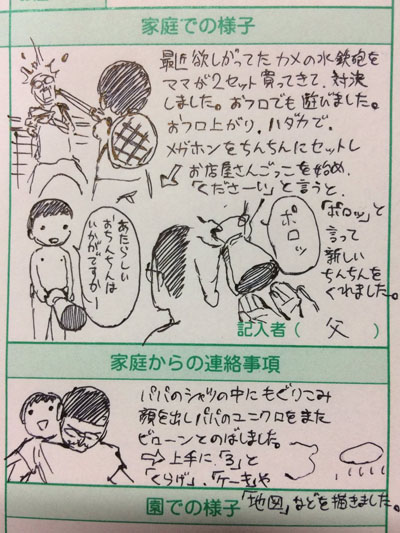 家庭での様子
最近欲しがってたカメの水鉄砲を
ママが2セット買ってきて、対決
しました。おフロでも遊びました。
おフロ上がり、ハダカで、
メガホンをちんちんにセットし
お店屋さんごっこを始め、
「くださーい」と言うと、
「ポロッ」と
言って
新しい
ちんちんを
くれました。
あたらしい
おちんちんは
いかがですかー
ポロッ
記入者( 父 )
家庭からの連絡事項
パパのシャツの中にもぐりこみ
顔を出しパパのユニクロをまた
ビューンとのばしました。
⇨上手に「3」と
「くらげ」、「ケーキ」や
「地図」などを描きました。
園での様子